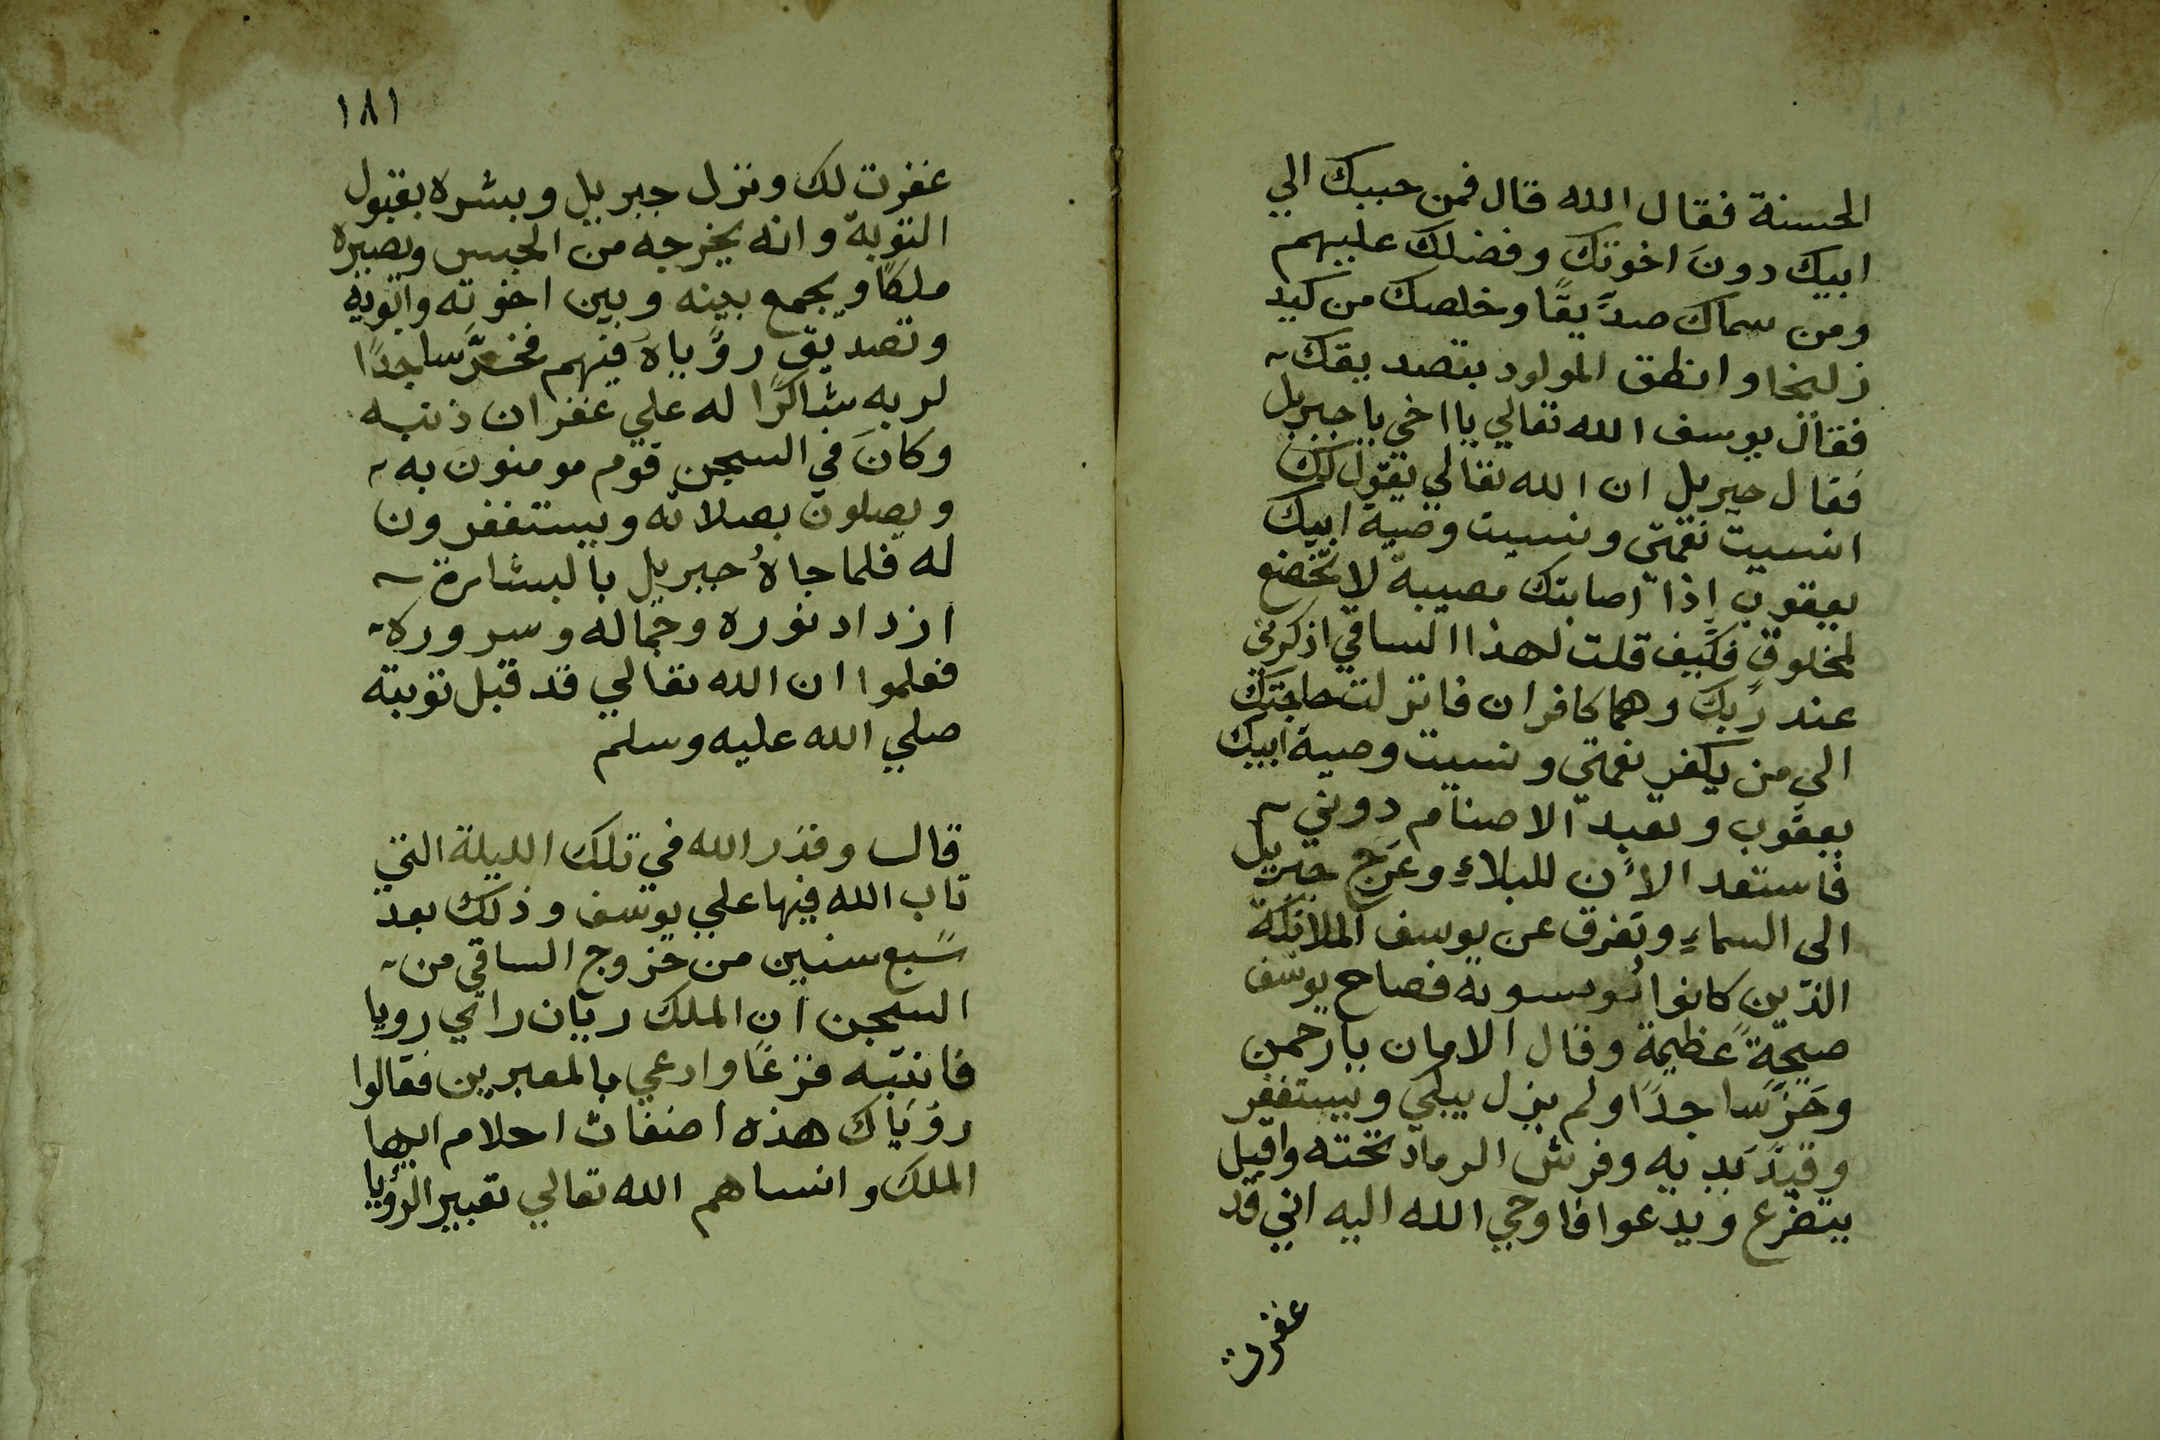 الحسنة فقال الله قال فمن حببك الي
ابيك دونَ اخوتك وفضلك عليهم
ومن سماك صدَّيقًا وخلصك من كيد
زليخا وانطق المولود بتصديقك
فقال يوسف الله تعالي يا اخي يا جبريل
فقال جبريل ان الله تعالي يقول لك
انسيت نعمتي ونسيت وصية ابيك
يعقوب إذا اصابتك مصيبة لا تخضع
لمخلوق فكيف قلت لهذا الساقي اذكرني
عند ربك وهما كافران فانزلت حاجتك
الي من يكفر نعمتي ونسيت وصية ابيك
يعقوب وتعبد الاصنام دوني
فاستعد الأن للبلاءِ وعرج جبريل
الى السماءِ وتفرق عن يوسف الملائكة
الذين كانوا يُونسونه فصاح يوسف
صيحةً عظيمة وقال الامان يا رحمن
وخرَّ ساجدًا ولم يزل يبكي ويستغفر
وقيدَّ يديه وفرش الرماد تحته واقبل
يتضرع ويدعوا فاوحي الله اليه اني قد
غفرت
١٨١
غفرت لك ونزل جبريل وبشره بقبول
التوبة وانه يخرجه من الحبس ويصيره
ملكًا ويجمع بينه وبين اخوته وابويه
وتصديق رؤياهُ فيهم فخرَّ ساجدًا
لربه شاكرًا له علي غفران ذنبه
وكانَ في السجن قوم مومنونَ به
ويصلون بصلاته ويستغفرون
له فلما جاهُ جبريل بالبشارة
ازداد نوره وجماله وسروره
فعلموا ان الله تعالي قد قبل توبته
صلي الله عليه وسلم
قال وقدر الله في تلك الليلة التي
تاب الله فيها علي يوسف وذلك بعد
سَبع سنين من خروج الساقي من
السجن ان الملك ريان راي رويا
فانتبه فزعًا وادعي بالمعبرين فقالوا
رؤياك هذه اضغاث احلام ايها
الملك وانساهم الله تعالي تعبير الرؤيا